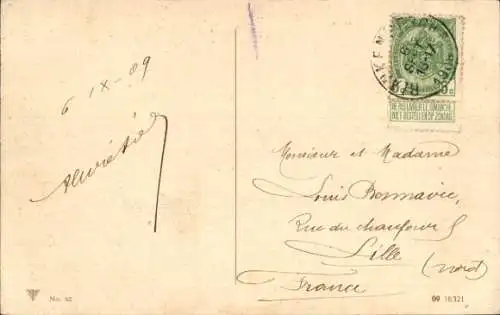 6 IX - 09
Monsieur et Madame
Louis Bonnavie
Rue du chaufour 5
Lille
(Nord)
France
NE PAS LIVRER LE DIMANCHE
NIET BESTELLEN OP ZONDAG
No. 92
09 10321